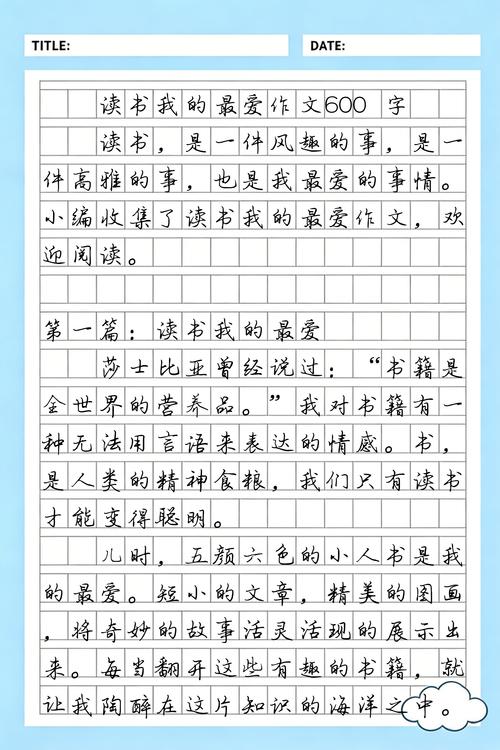 TITLE:
DATE:
读书我的最爱作文600 字
读书，是一件风趣的事，是一
件高雅的事，也是我最爱的事情。
小编收集了读书我的最爱作文，欢
迎阅读。
第一篇：读书我的最爱
莎士比亚曾经说过：“书籍是
全世界的营养品。”我对书籍有一
种无法用言语来表达的情感。书，
是人类的精神食粮，我们只有读书
才能变得聪明。
儿时，五颜六色的小人书是我
的最爱。短小的文章，精美的图画
，将奇妙的故事活灵活现的展示出
来。每当翻开这些有趣的书籍，就
让我陶醉在这片知识的海洋之中。